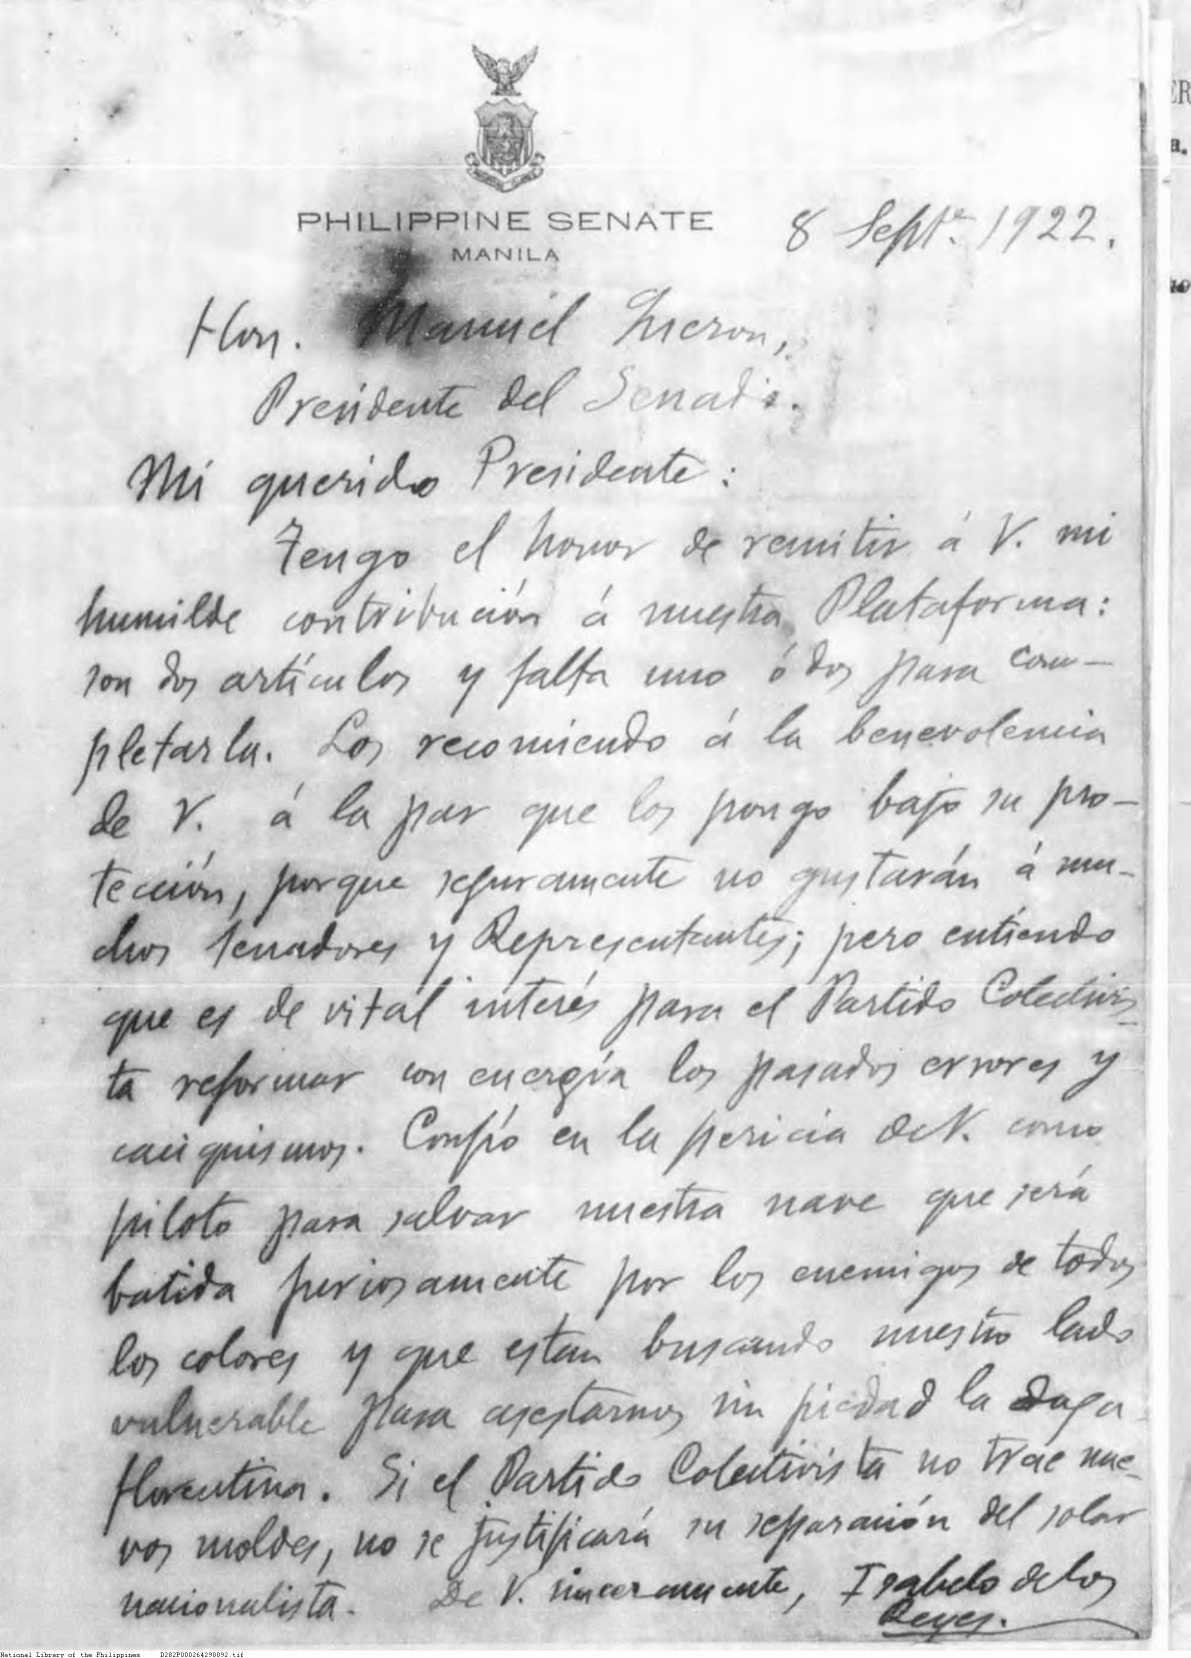 PHILIPPINE SENATE
MANILA
8 Septe. 1922.
Hon. Manuel Quezon,
Presidente del Senado.
Mi querido Presidente:
Tengo el honor de remitir á V. mi
humilde contribución á nuestra Plataforma:
son dos artículos y falta uno ó dos para com-
pletarla. Los recomiendo á la benevolencia
de V. á la par que los pongo bajo su pro-
tección, porque seguramente no gustarán á mu-
chos Senadores y Representantes; pero entiendo
que es de vital interés para el Partido Colectivis-
ta reformar con energía los pasados errores y
caciquismos. Confío en la pericia de V. como
piloto para salvar nuestra nave que será
batida furiosamente por los enemigos de todos
los colores y que estan buscando nuestro lado
vulnerable para asestarnos sin piedad la daga
florentina. Si el Partido Colectivista no trae nue-
vos moldes, no se justificará su separación del solar
nacionalista. De V. sinceramente, Isabelo de los
Reyes.
ER
a.
National Library of the Philippines D282P000264290092.tif